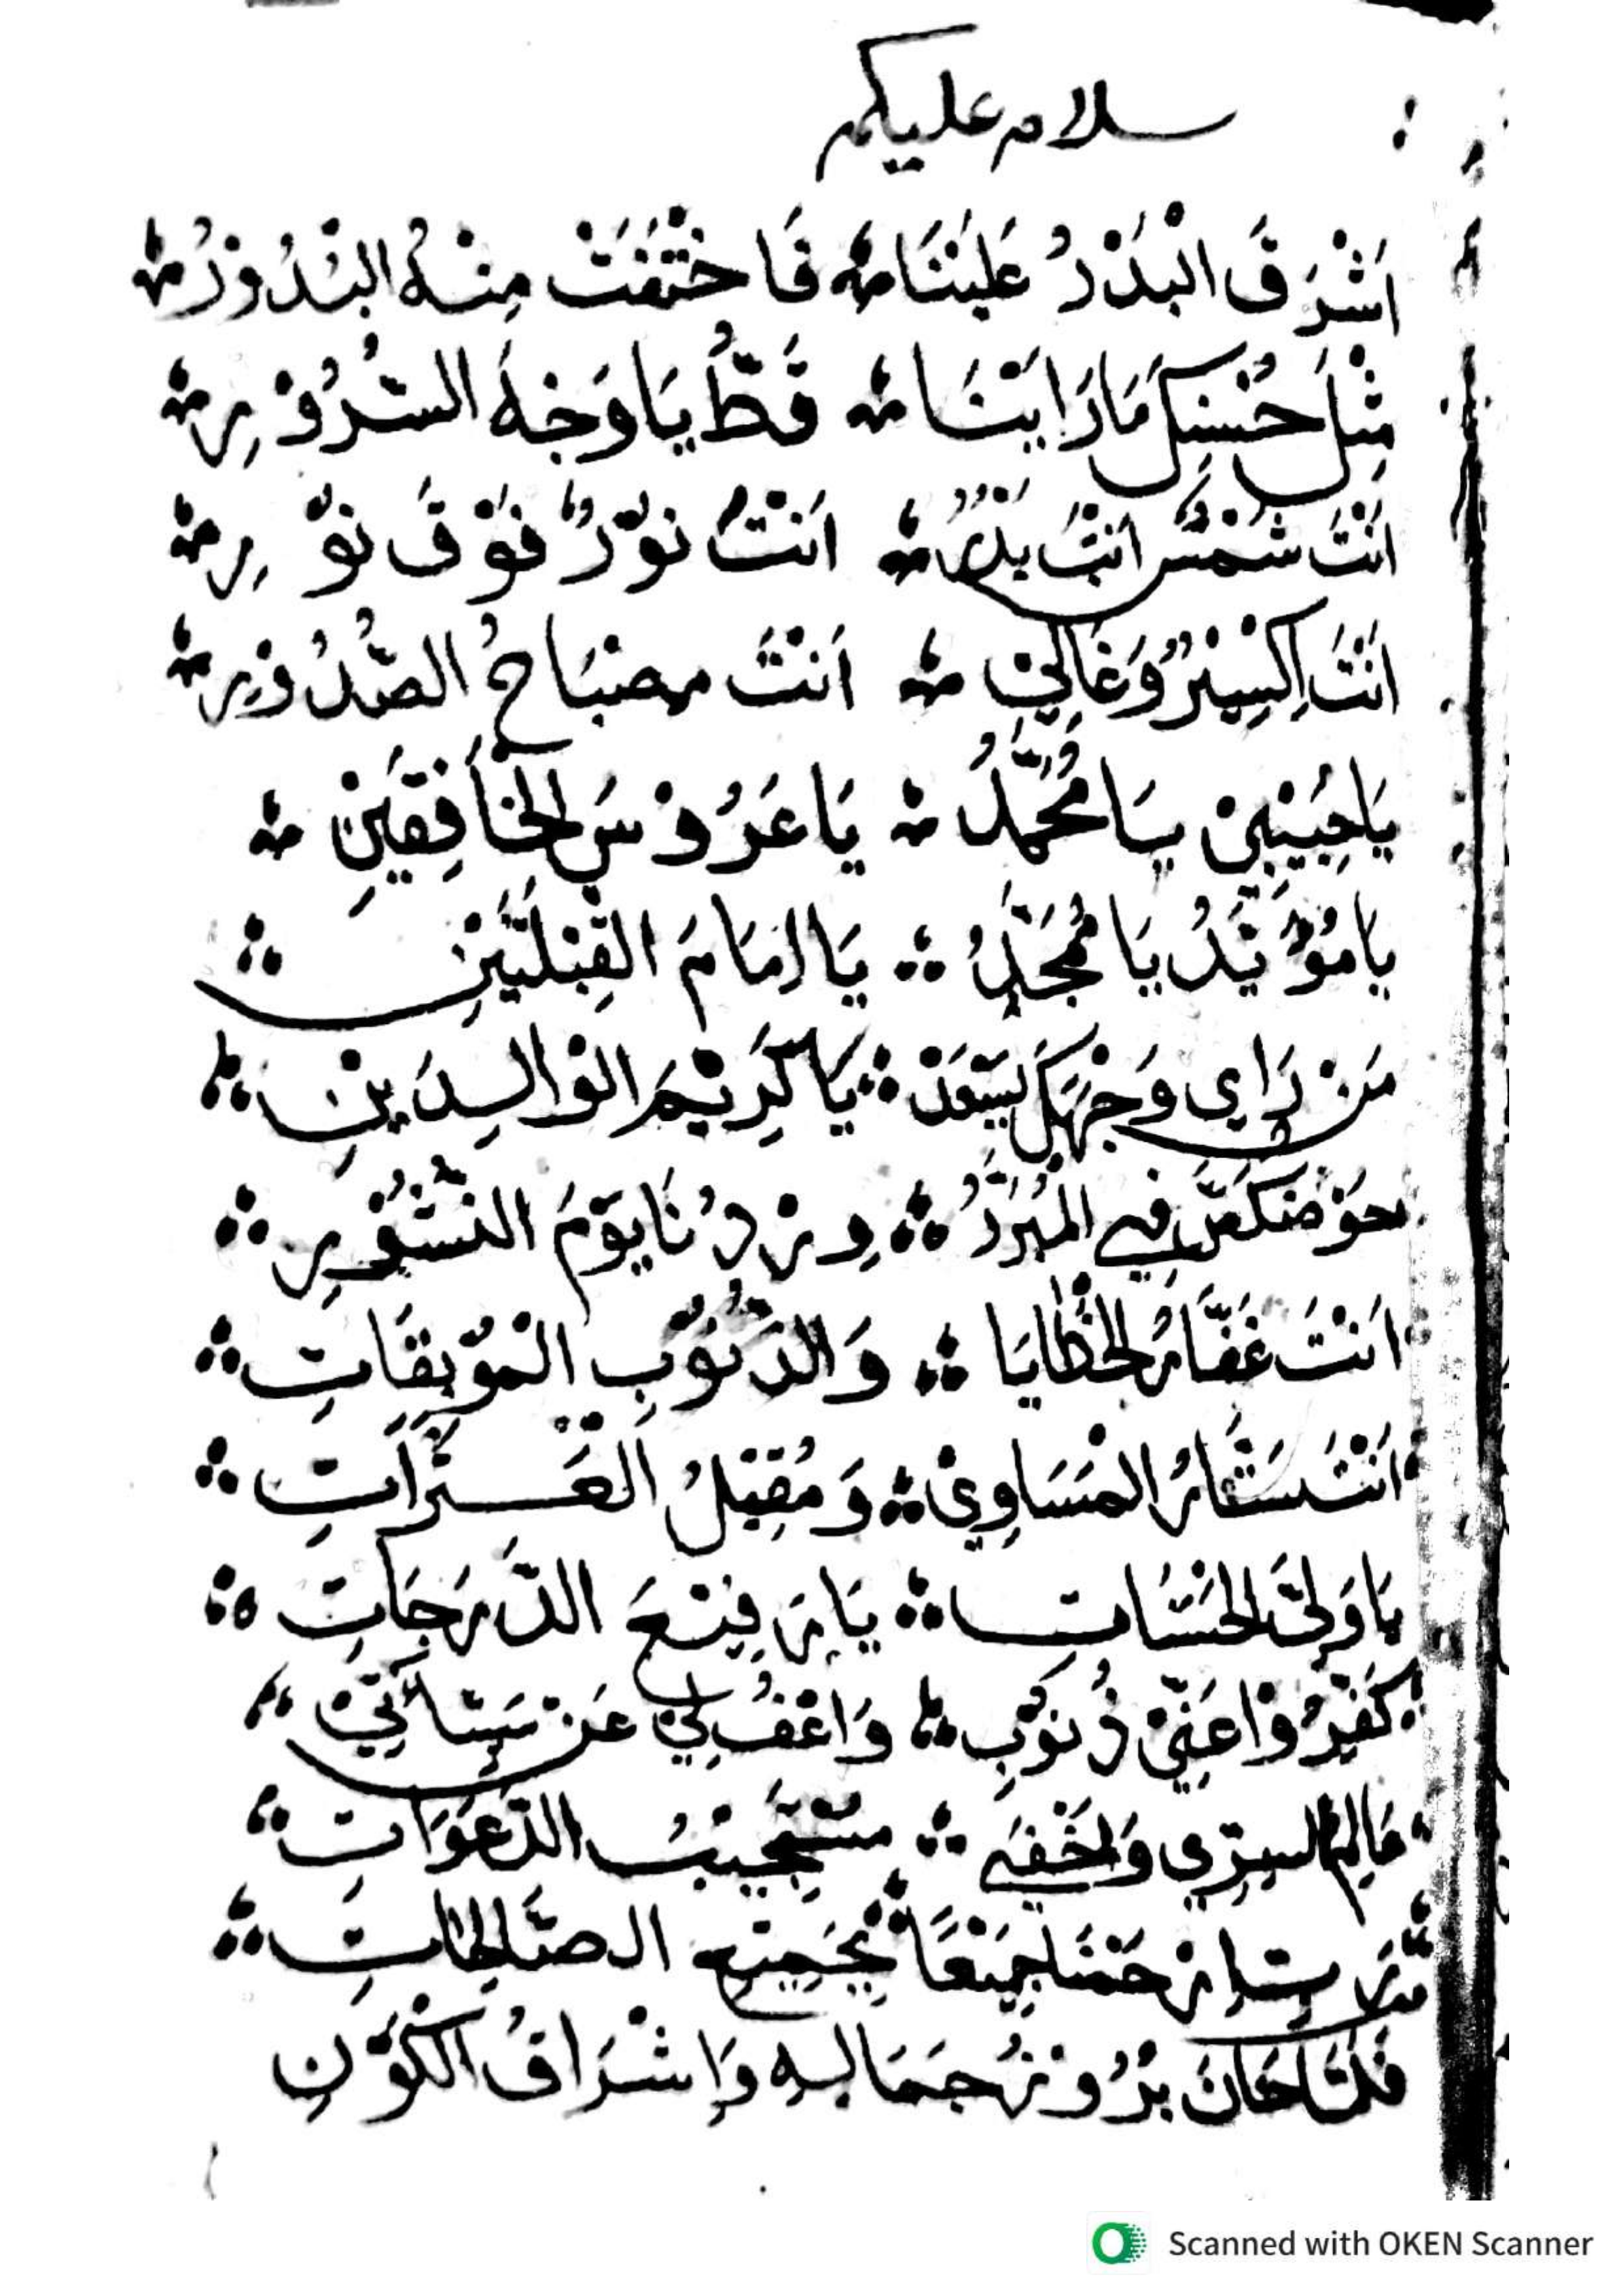 سلام عليكم
اَشْرَقَ الْبَدْرُ عَلَيْنَا ؞ فَاخْتَفَتْ مِنْهُ الْبُدُوْرُ ؞
مِثْلَ حُسْنِكَ مَارَاَيْنَا ؞ قَطُّ يَاوَجْهَ السُّرُوْرِ ؞
اَنْتَ شَمْسٌ اَنْتَ بَدْرٌ ؞ اَنْتَ نُوْرٌ فَوْقَ نُوْرِ ؞
اَنْتَ اِكْسِيْرٌ وَغَالِيْ ؞ اَنْتَ مِصْبَاحُ الصُّدُوْرِ ؞
يَاحَبِيْبِيْ يَامُحَمَّدُ ؞ يَاعَرُوْسَ الْخَافِقَيْنِ ؞
يَامُؤَيَّدُ يَامُمَجَّدُ ؞ يَااِمَامَ الْقِبْلَتَيْنِ ؞
مَنْ رَاَي وَجْهَكَ يَسْعَدْ ؞ يَاكَرِيْمَ الْوَالِدَيْنِ ؞
حَوْضُكَ فِي الْمُبَرَّدُ ؞ وِرْدُنَا يَوْمَ النُّشُوْرِ ؞
اَنْتَ غَفَّارُ الْخَطَايَا ؞ وَالذُّنُوْبِ الْمُوْبِقَاتِ ؞
اَنْتَ سَتَّارُ الْمَسَاوِيْ ؞ وَمُقِيْلُ الْعَثَرَاتِ ؞
يَاوَلِيَّ الْحَسَنَاتِ ؞ يَارَفِيْعَ الدَّرَجَاتِ ؞
كَفِّرُوْاعَنِّيْ ذُنُوْبِ ؞ وَاغْفُ لِيْ عَنْ سَيِّئَاتِيْ ؞
عَالِمُ السِّرِّي وَاَخْفَي ؞ مُسْتَجِيْبُ الدَّعَوَاتِ ؞
رَبِّ اِرْحَمْنَا جَمِيْعًا ؞ بِجَمِيْعِ الصَّالِحَاتِ ؞
فَلَمَّا حَانَ بُرُوْزُ جَمَالِهِ وَاِشْرَاقُ الْكَوْنِ
Scanned with OKEN Scanner